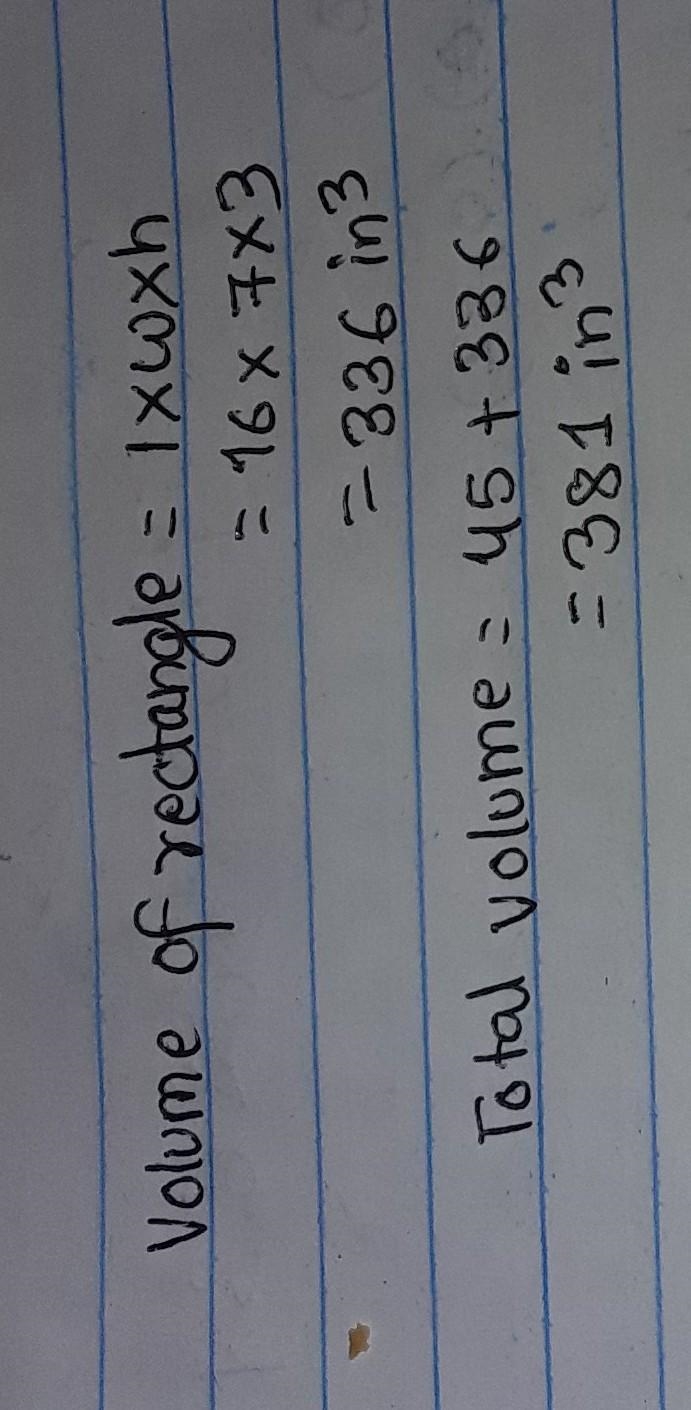 Volume of rectangle = l x w x h
= 16 x 7 x 3
= 336 in³
Total volume = 45 + 336
= 381 in³